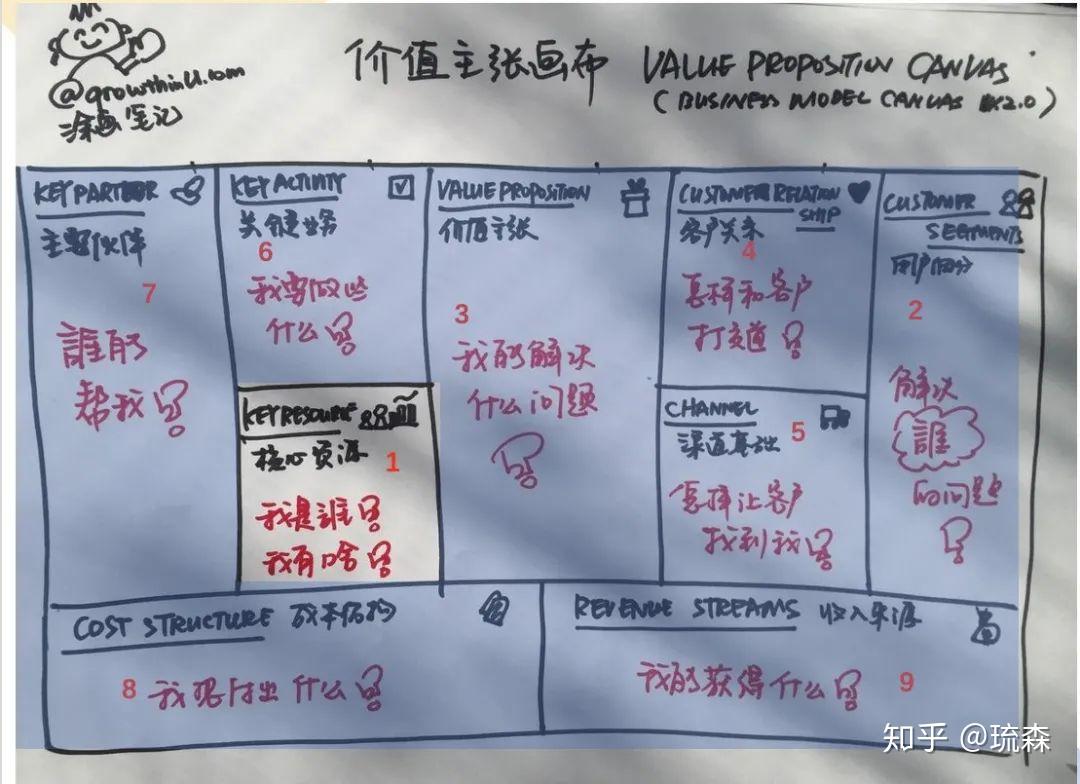 @growthinU.com
涂画笔记
价值主张画布 VALUE PROPOSITION CANVAS
(BUSINESS MODEL CANVAS 2.0)
KEY PARTNER
主要伙伴
7
誰能
帮我?
KEY ACTIVITY
关键业务
6
我要做些
什么?
KEY RESOURCE
核心资源
1
我是誰?
我有啥?
VALUE PROPOSITION
价值主张
3
我能解决
什么问题
?
CUSTOMER RELATION
SHIP
客户关系
4
怎样和客户
打交道?
CHANNEL
渠道基础
5
怎样让客户
找到我?
CUSTOMER
SEGMENTS
用户细分
2
解决
誰
的问题
?
COST STRUCTURE 成本结构
8
我要付出什么?
REVENUE STREAMS 收入来源
我能获得什么?
9
知乎 @琉森